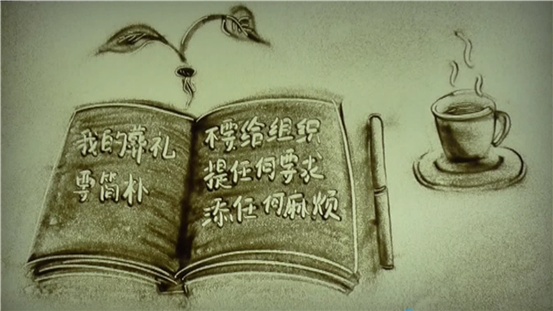 我的葬礼
要简朴
不要给组织
提任何要求
添任何麻烦